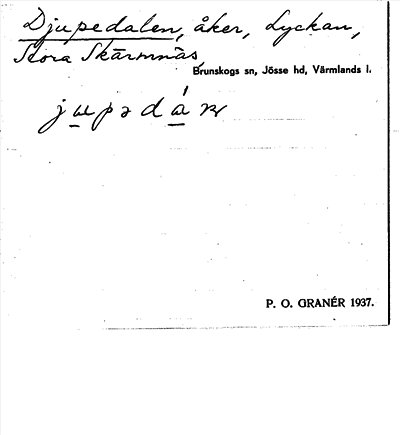 Djupedalen, åker, Lyckan,
Stora Skärmnäs,
Brunskogs sn, Jösse hd, Värmlands l.
P. O. GRANÉR 1937.